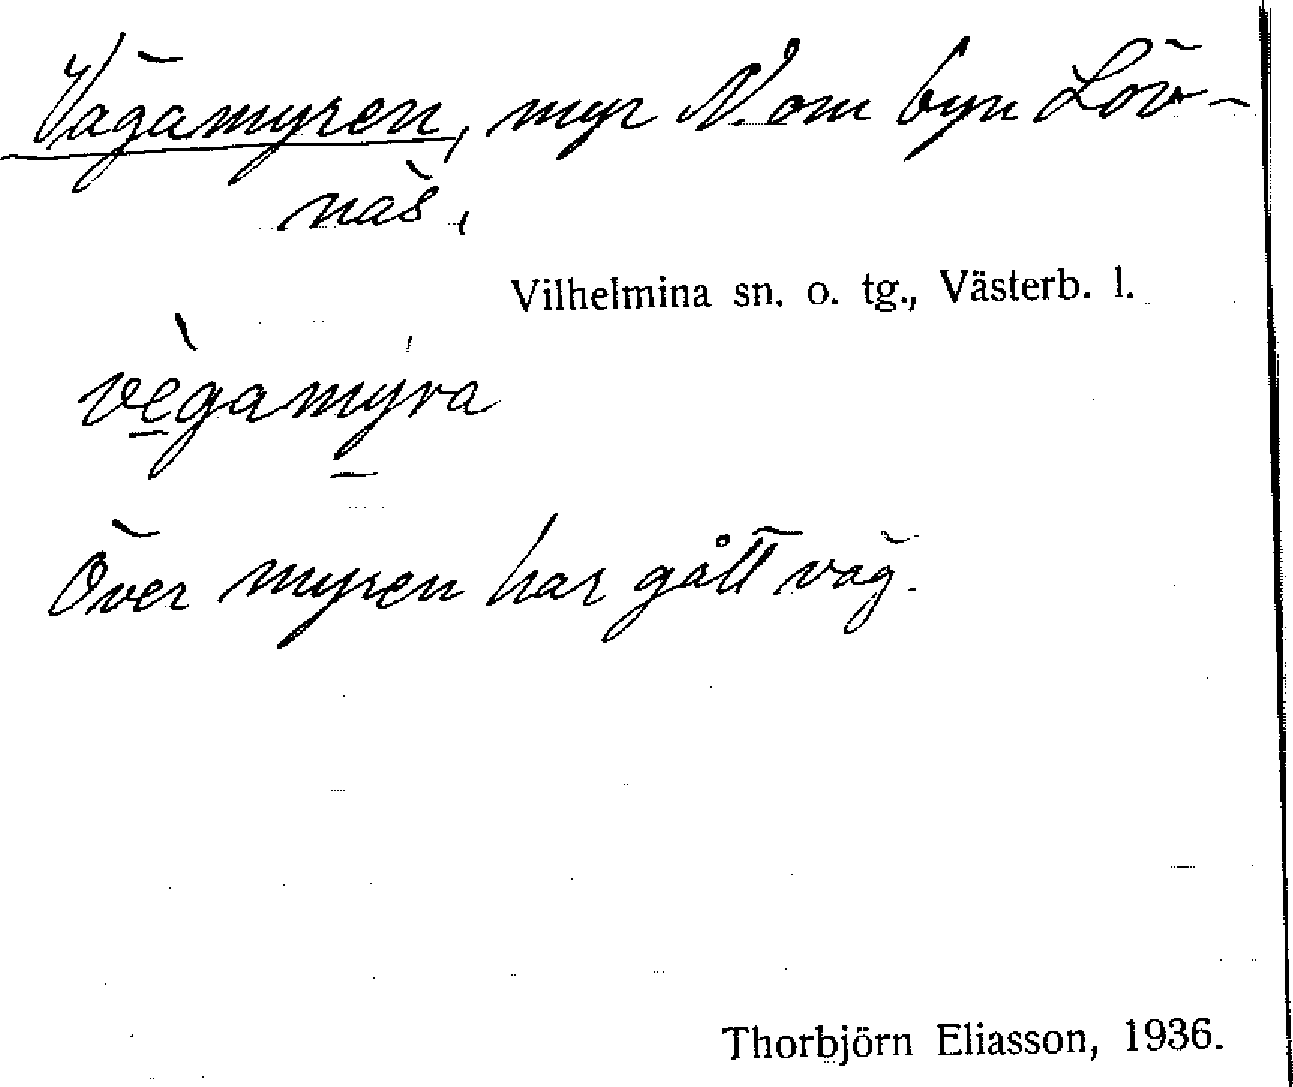 Vägamyren, myr N. om byn Löv-
näs,
Vilhelmina sn. o. tg., Västerb. l.
vè̱gamý̱ra
Över myren har gått väg.
Thorbjörn Eliasson, 1936.